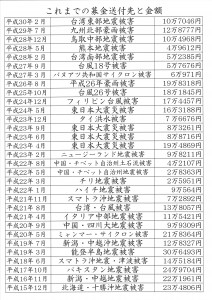 これまでの募金送付先と金額
平成30年2月 台湾東部地震被害 10万7046円
平成29年7月 九州北部豪雨被害 12万8777円
平成28年12月 鳥取中部地震被害 10万4968円
平成28年5月 熊本地震被害 1961円
平成28年3月 台湾南部地震被害
平成27年9月 台風18号被害 5万7676円
平成27年3月 バヌアツ共和国サイクロン被害 6万971円
平成26年9月 平成26年豪雨被害 8318円
平成25年10月 台風26号被害 18万1845円
平成24年12月 フィリピン台風被害 17万4457円
平成24年3月 東日本大震災被害 16万3388円
平成23年12月 タイ洪水被害 7万6676円
平成23年9月 東日本大震災被害 19万3679円
平成23年6月 東日本大震災被害 23万3678円
平成23年4月 東日本大震災被害 19万4869円
平成23年3月 ニュージーランド地震被害 9万8211円
平成22年9月 中国・チベット自治州土石流被害 12万2107円
平成22年5月 中国・チベット自治州地震被害 12万8363円
平成22年3月 チリ地震被害 12万5951円
平成22年1月 ハイチ地震被害 9万7564円
平成21年11月 スマトラ沖地震被害 7万2892円
平成21年8月 台風9号被害 7万8567円
平成21年4月 イタリア中部地震被害 11万7421円
平成20年6月 中国・四川大地震被害
平成20年5月 ミャンマー・サイクロン被害 21万8364円
平成19年7月 新潟・中越沖地震被害 13万327円
平成19年3月 能登半島地震被害 13万6493円
平成18年6月 スマトラ沖地震・津波被害 14万4851円
平成17年10月 パキスタン地震被害 24万9704円
平成16年11月 新潟・中越地震被害 22万1961円
平成15年12月 北海道・十勝沖地震被害 23万4806円